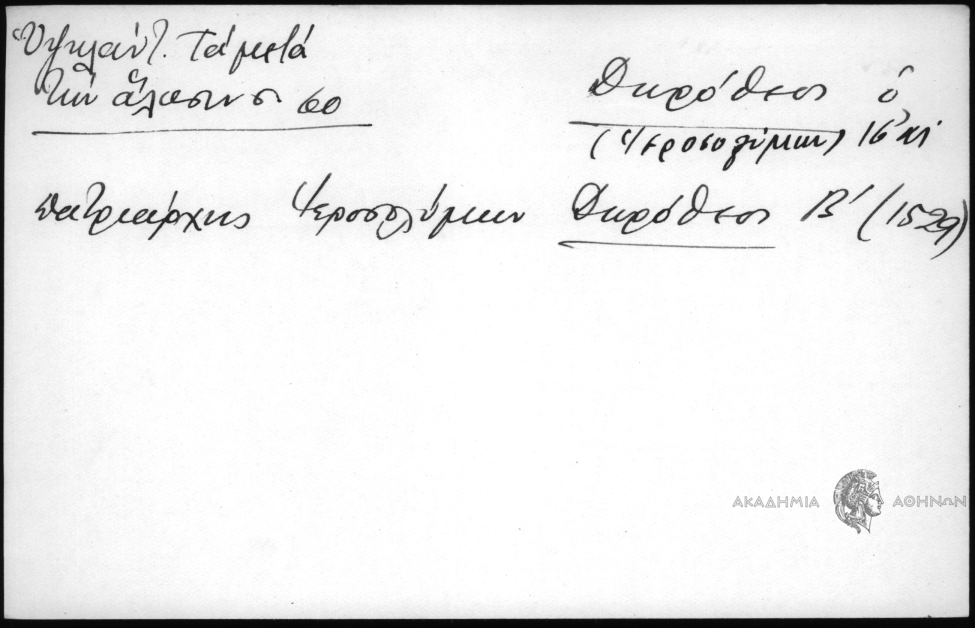 Ὑψηλάντ. Τά μετά
τήν ἅλωσιν σ. 60
Δωρόθεος ὁ
(Ἱεροσολύμων) 16 αἰ
πατριάρχης Ἱεροσολύμων Δωρόθεος Β΄ (1529)
ΑΚΑΔΗΜΙΑ ΑΘΗΝΩΝ